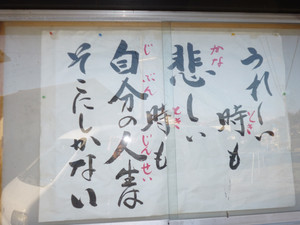 うれしい時も
悲しい時も
自分の人生は
そこにしかない